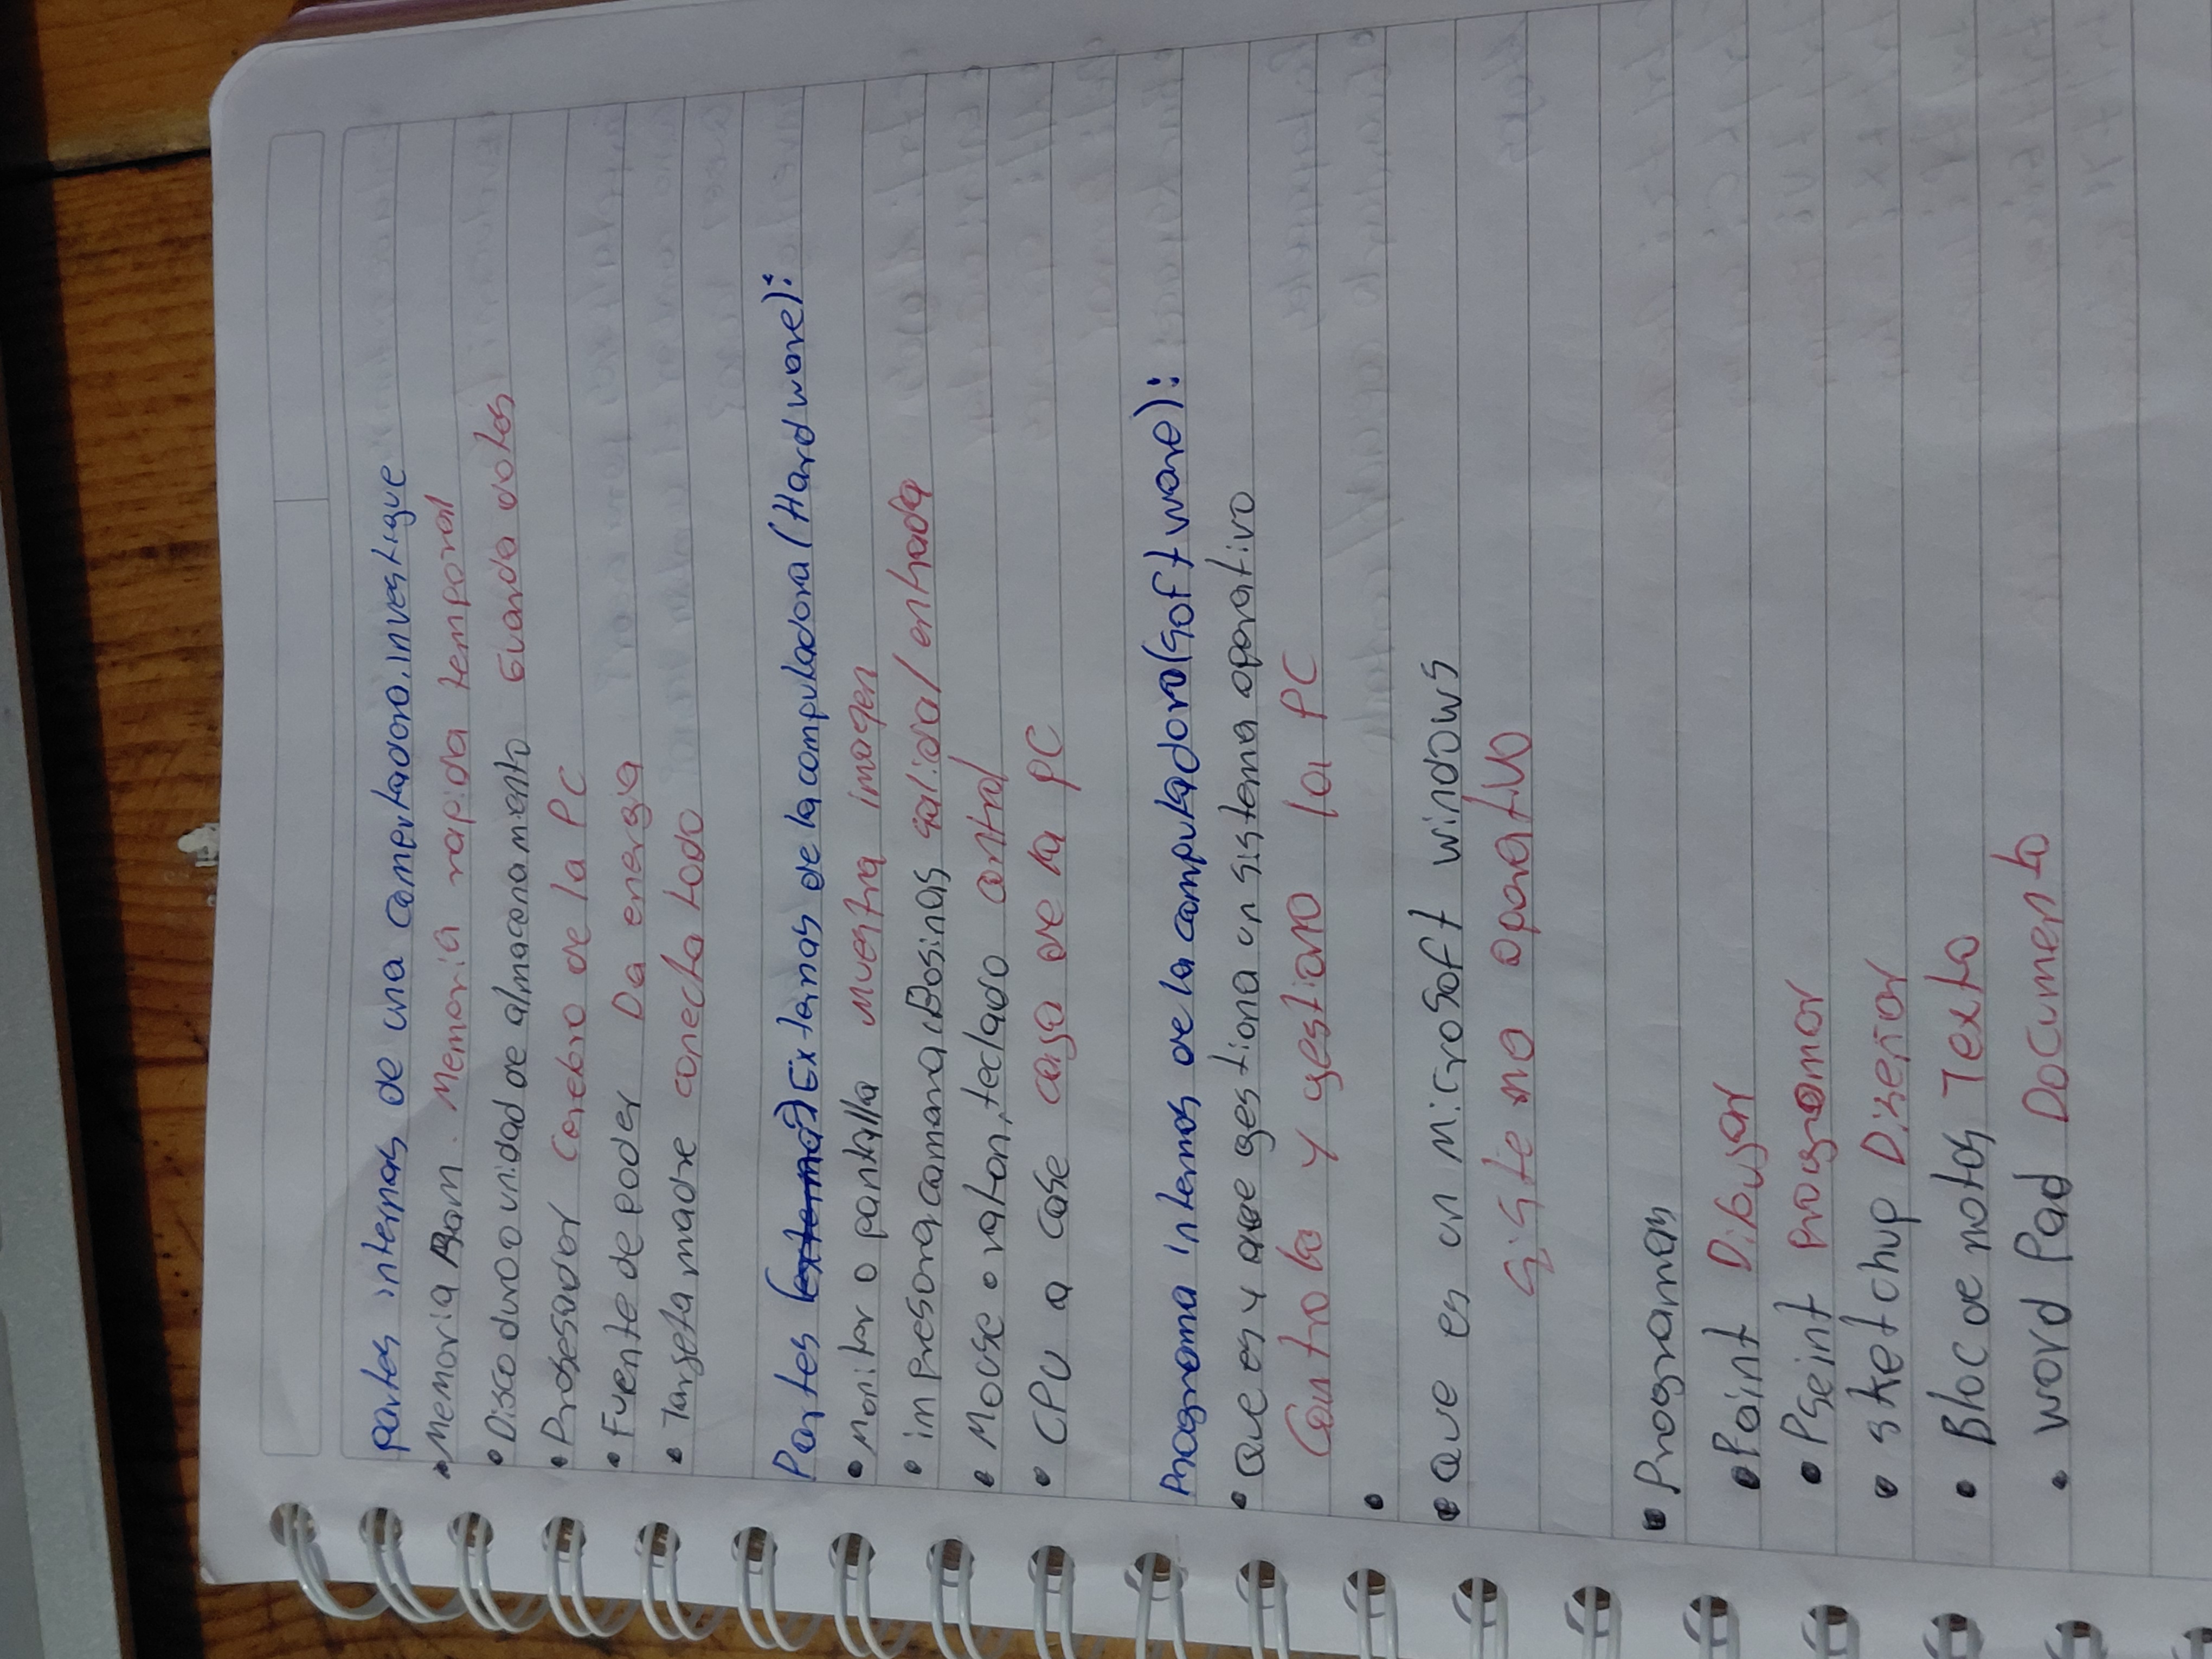 partes internas de una computadora, investigue
• Memoria Ram. Memoria rapida temporal
• Disco duro o unidad de almacenamento Guarda datos
• Prosesador Cerebro de la PC
• Fuente de poder Da energia
• Tarjeta madre conecta todo
Partes (externas) Externas de la computadora (Hardware):
• Monitor o pantalla Muestra imagen
• impresora, camara, Bosinas salida/entrada
• Mouse o raton, teclado control
• CPU a case casa de la PC
Programa internos de la computadora (software):
• Que es y que gestiona un sistema operativo
Controla y gestiona la PC
•
• Que es un Microsoft windows
Sistema operativo
• Programas
• Paint Dibujar
• PSeint Programar
• sketchup Diseñar
• Bloc de notas Texto
• word Pad Documento